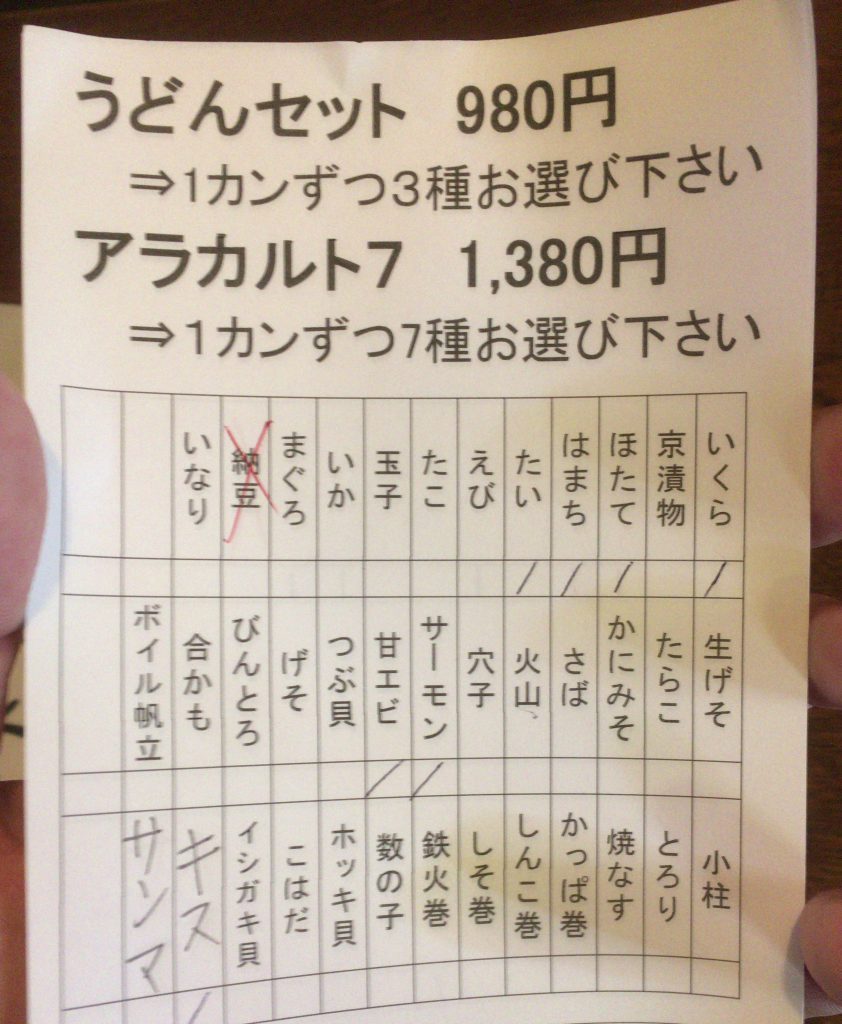 うどんセット 980円
⇒1カンずつ3種お選び下さい
アラカルト7 1,380円
⇒1カンずつ7種お選び下さい
いくら
京漬物
ほたて
はまち
たい
えび
たこ
玉子
いか
まぐろ
納豆
いなり
生げそ
たらこ
かにみそ
さば
火山
穴子
サーモン
甘エビ
つぶ貝
げそ
びんとろ
合かも
ボイル帆立
小柱
とろり
焼なす
かっぱ巻
しんこ巻
しそ巻
鉄火巻
数の子
ホッキ貝
こはだ
イシガキ貝
キス
サンマ